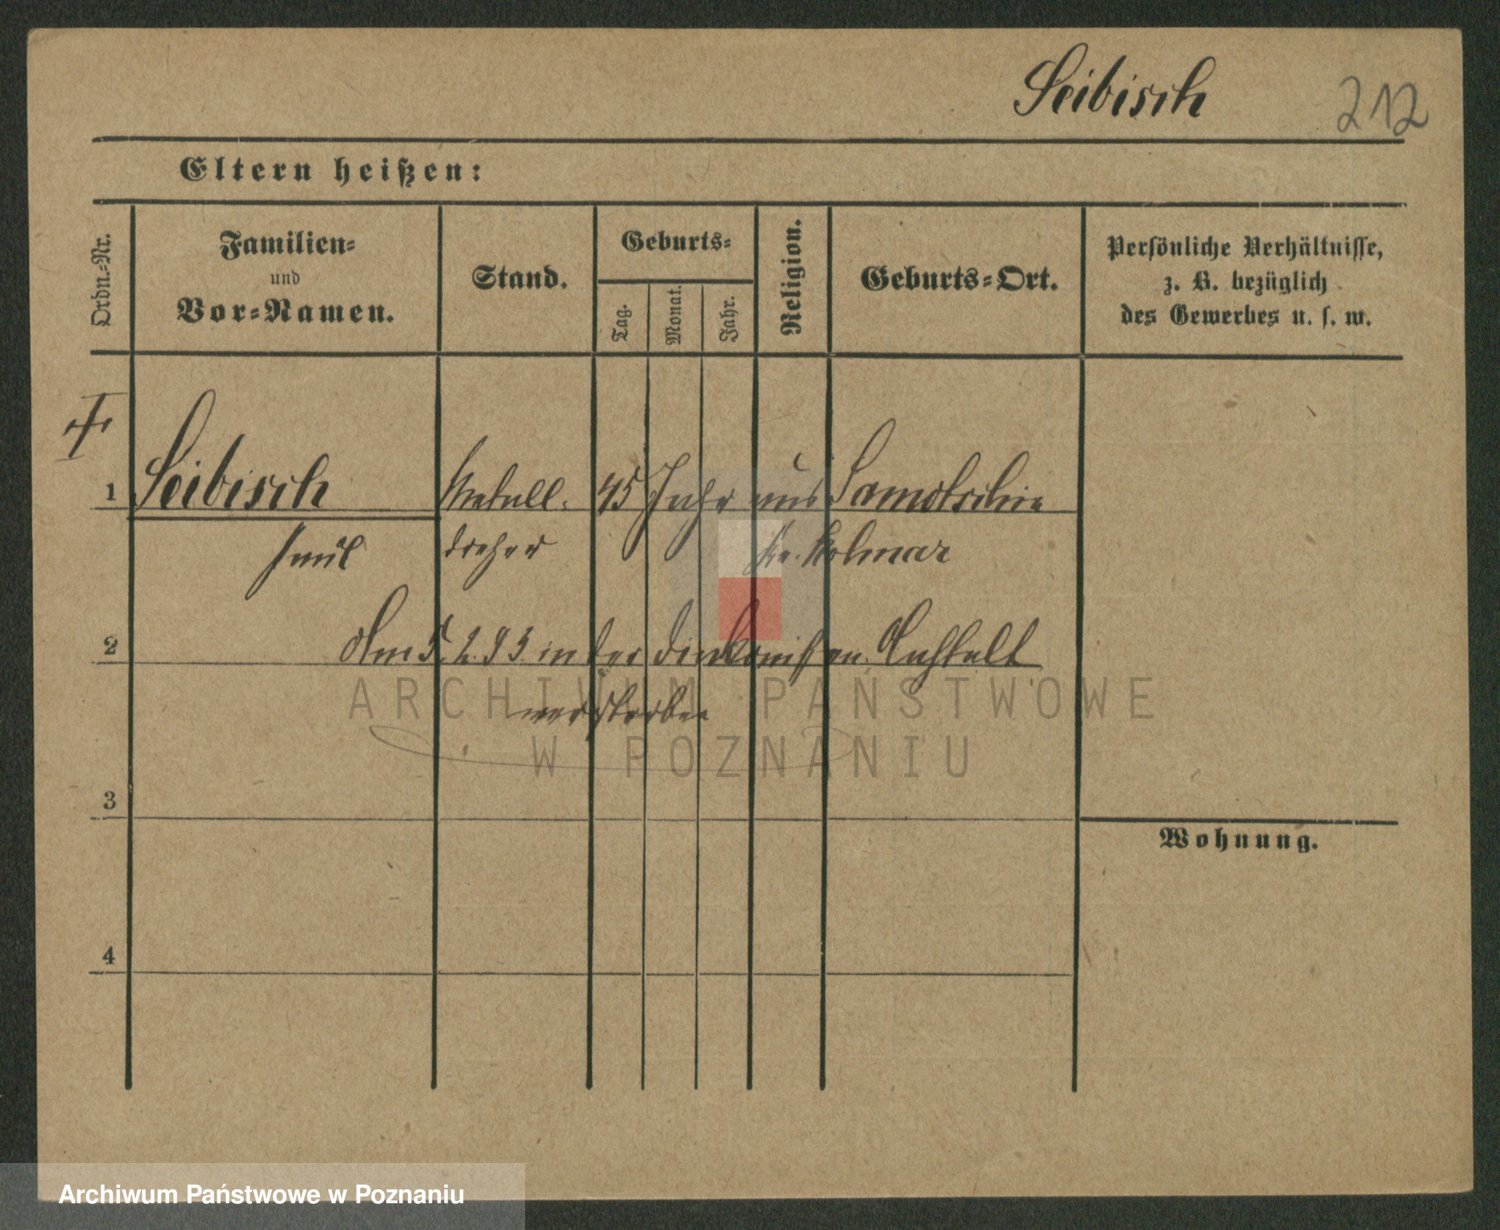 Seibisch 212
Eltern heißen:
Ordn.=Nr.
Familien=
und
Vor=Namen.
Stand.
Geburts=
Tag.
Monat.
Jahr.
Religion.
Geburts=Ort.
Persönliche Verhältnisse,
z. B. bezüglich
des Gewerbes u. s. w.
1 Seibisch Metall- 45 Jahr aus Samotschin
Emil dreher Kr. Kolmar
2 Am 5.2.93 in der Anstalt
verstorben
ARCHIWUM PAŃSTWOWE
W POZNANIU
3
Wohnung.
4
Archiwum Państwowe w Poznaniu